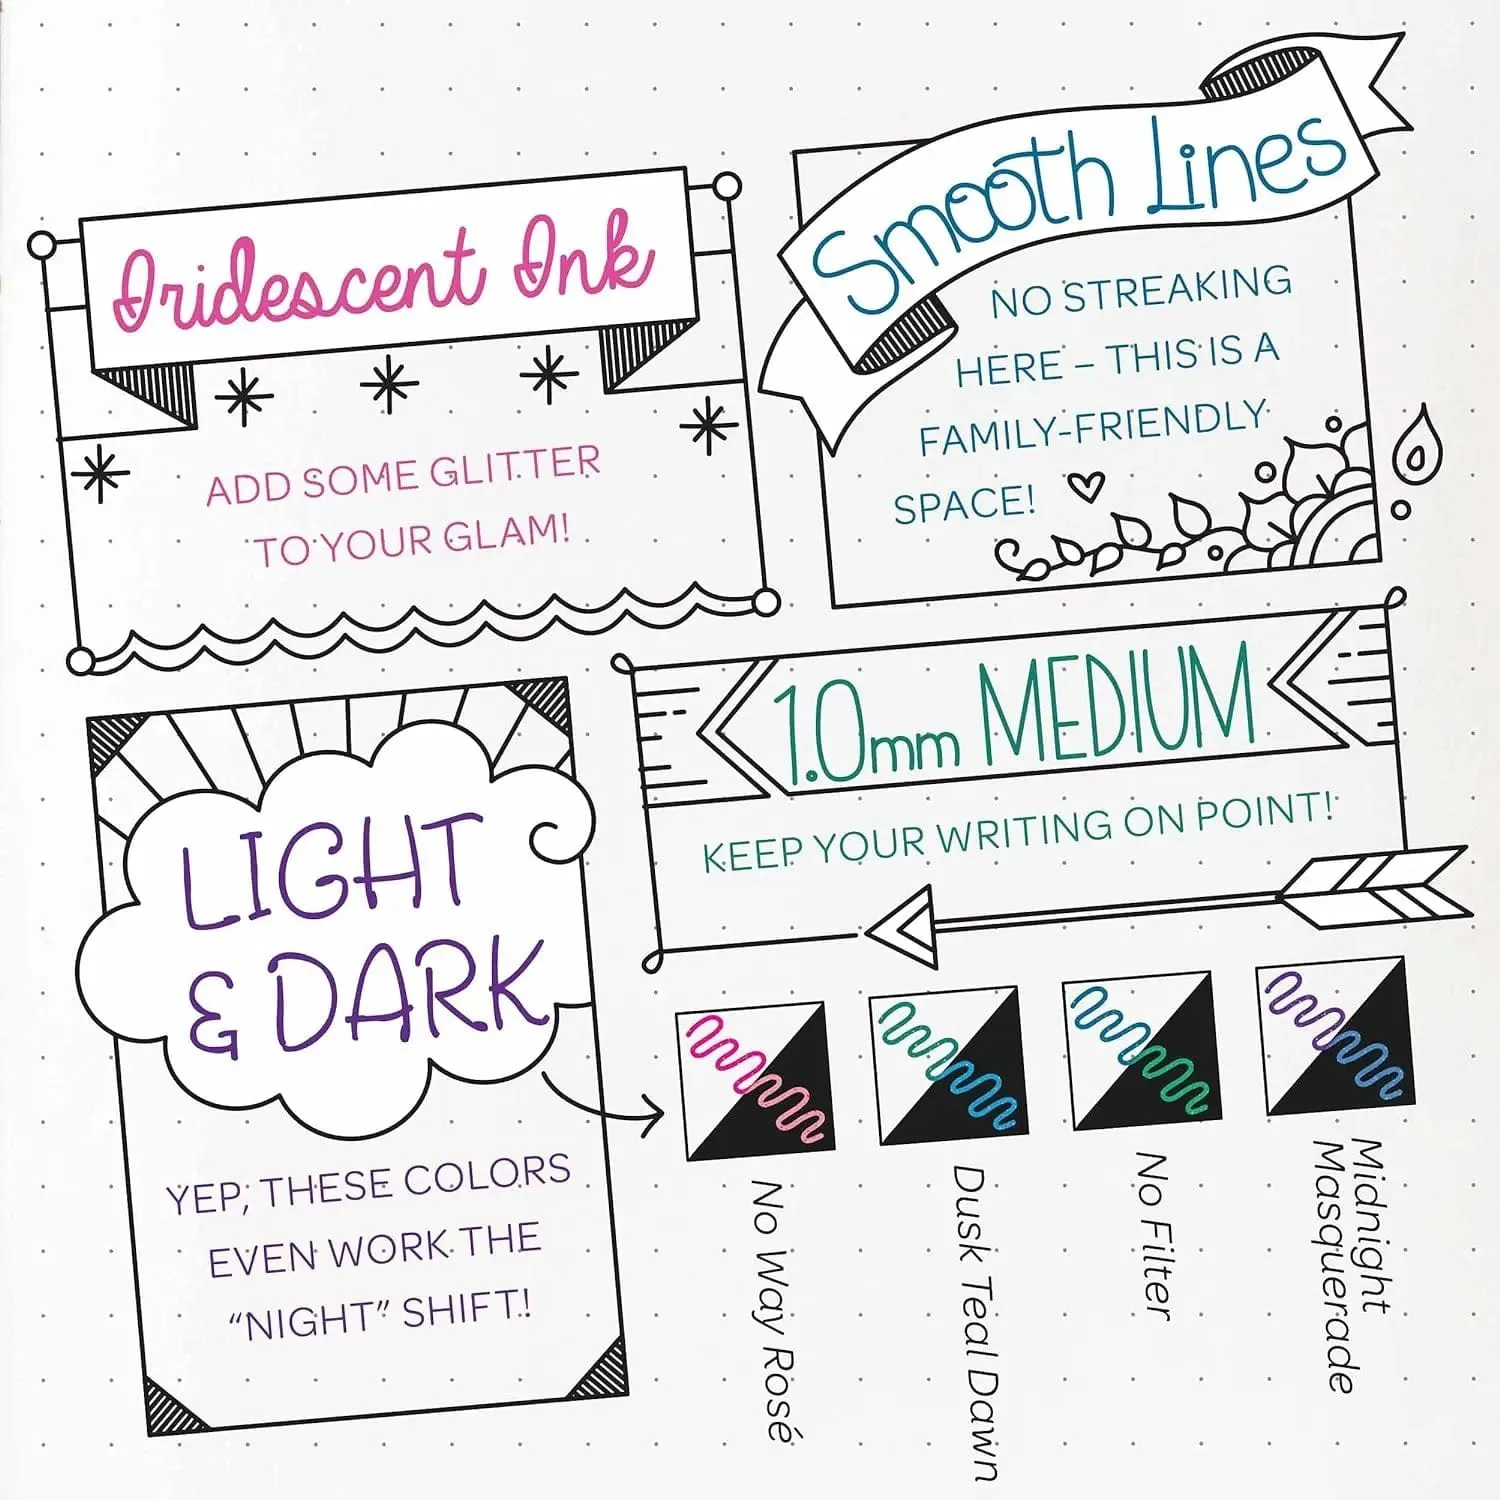 Iridescent Ink
ADD SOME GLITTER
TO YOUR GLAM!
Smooth Lines
NO STREAKING
HERE – THIS IS A
FAMILY-FRIENDLY
SPACE!
1.0mm MEDIUM
KEEP YOUR WRITING ON POINT!
LIGHT
& DARK
YEP, THESE COLORS
EVEN WORK THE
“NIGHT” SHIFT!
No Way Rosé
Dusk Teal Dawn
No Filter
Midnight
Masquerade